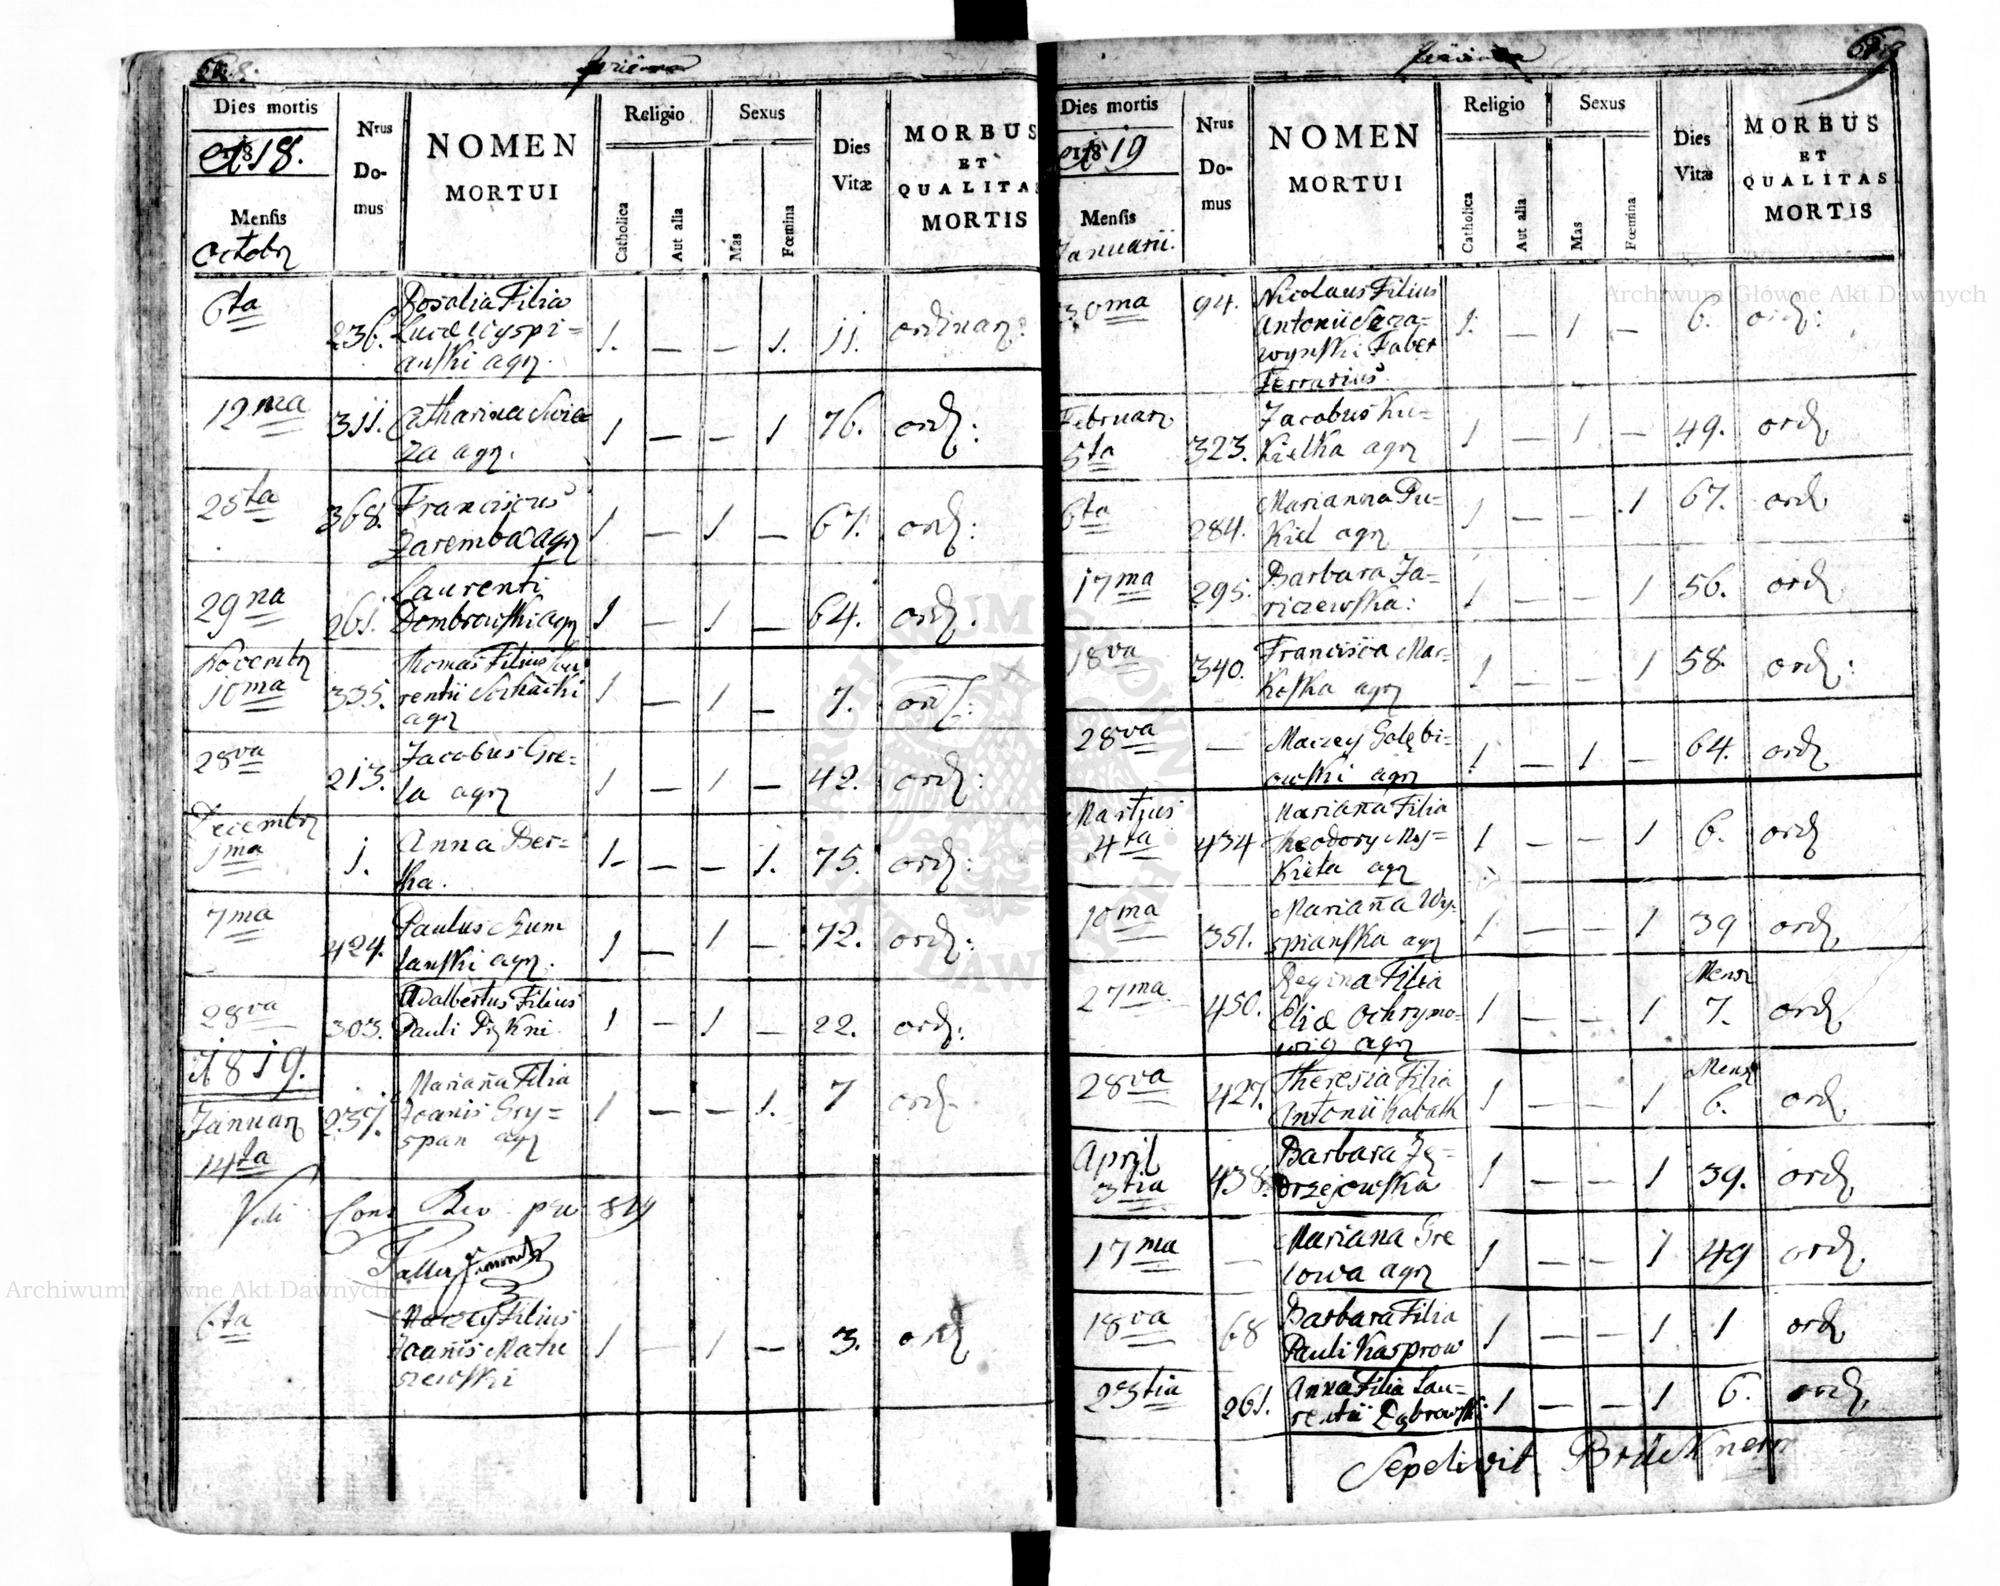 Dies mortis
1818.
Mensis
Octobr
Nrus
Do-
mus
NOMEN
MORTUI
Religio
Catholica
Aut alia
Sexus
Mas
Fœmina
Dies
Vitæ
MORBUS
ET
QUALITAS
MORTIS
6ta
236.
Rosalia Filia
Lucæ Wyspi=
anski agr.
1. — — 1. 11. ordinar:
12ma
311.
Catharina Swie
za agr.
1 — — 1 76. ord:
25ta
368.
Franciscus
Zaremba agr
1 — 1 — 67. ord:
29na
261.
Laurenti
Dombrowski agr
1 — 1 — 64. ord.
Novembr
10ma
335.
Thomas Filius Lau
rentii Sochacki
agr
1 — 1 — 7. ord:
28va
213.
Jacobus Gre=
la agr
1 — 1 — 42. ord:
Decembr
1ma
1.
Anna Ber=
ska.
1- — — 1. 75. ord:
7ma
424.
Paulus Szum
lanski agr.
1 — 1 — 72. ord:
28va
303.
Adalbertus Filius
Pauli Pękni
1 — 1 — 22. ord:
1819.
Januar
14ta
237.
Mariana Filia
Joanis Gry=
span agr
1 — — 1. 7 ord.
Vidi Can. 819
6ta
Maczey Filius
Joanis Matu
szewski
1 — 1 — 3. ord
Dies mortis
1819
Mensis
Januarii.
Nrus
Do-
mus
NOMEN
MORTUI
Religio
Catholica
Aut alia
Sexus
Mas
Fœmina
Dies
Vitæ
MORBUS
ET
QUALITAS
MORTIS
30ma
94.
Nicolaus Filius
Antonii Sara=
wynski Faber
Ferrarius.
1. — 1 — 6. ord:
Februar
5ta
323.
Jacobus Ku=
kielka agr
1 — 1 — 49. ord
6ta
284.
Marianna Pu=
kiel agr
1 — — 1 67. ord
17ma
295.
Barbara Ja=
riczewska:
1 — — 1 56. ord
18va
340.
Francisca Mar=
koska agr
1 — — 1 58. ord:
28va
—
Maczey Golębi=
owski agr
1 — 1 — 64. ord
Martius
4ta
434
Mariana Filia
Theodory My=
kieta agr
1 — — 1 6. ord
10ma
351.
Mariana Wy=
spianska agr
1 — — 1 39 ord
27ma.
450.
Regina Filia
Eliæ Ochrymo=
wig agr
1 — — 1 Mens
7. ord
28va
427.
Theresia Filia
Antonii Kabath
1 — — 1 Mens
6. ord
April
3tia
438.
Barbara Ję=
drzejowska
1 — — 1 39. ord
17ma
—
Mariana Gre
lowa agr
1 — — 1 49 ord.
18va
68
Barbara Filia
Pauli Kasprow
1 — — 1 1 ord
23tia
261.
Anna Filia Lau=
rentii Dąbrowski
1 — — 1 6. ord
Sepelivit
Archiwum Główne Akt Dawnych
Archiwum Główne Akt Dawnych
ARCHIWUM GŁÓWNE AKT DAWNYCH